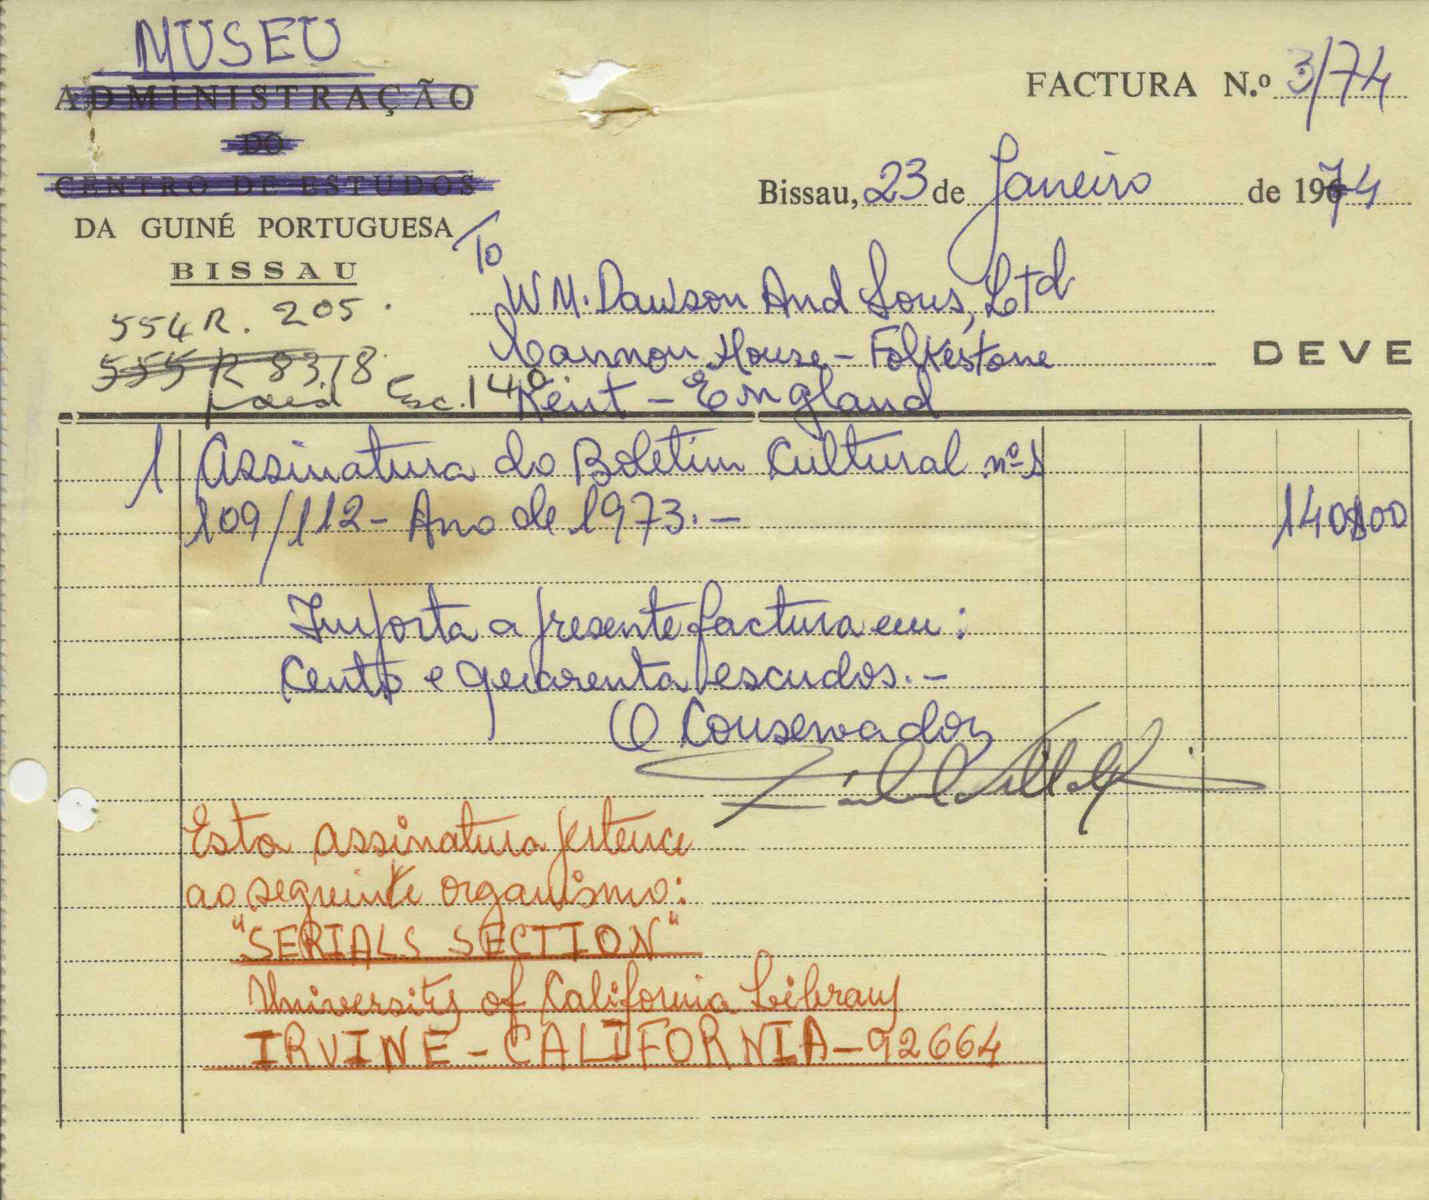 MUSEU
ADMINISTRAÇÃO
DO
CENTRO DE ESTUDOS
DA GUINÉ PORTUGUESA
BISSAU
FACTURA N.º 3/74
Bissau, 23 de Janeiro de 1974
To
WM. Dawson And Sons, Ltd
Cannon House - Folkestone
Kent - England
DEVE
554 R. 205.
555 R 8378
paid Esc. 140
1 Assinatura do Boletim Cultural nºs
109/112 - Ano de 1973. - 140$00
Importa a presente factura em:
Cento e quarenta escudos. -
O Conservador
Esta assinatura pertence
ao seguinte organismo:
"SERIALS SECTION"
University of California Library
IRVINE - CALIFORNIA - 92664